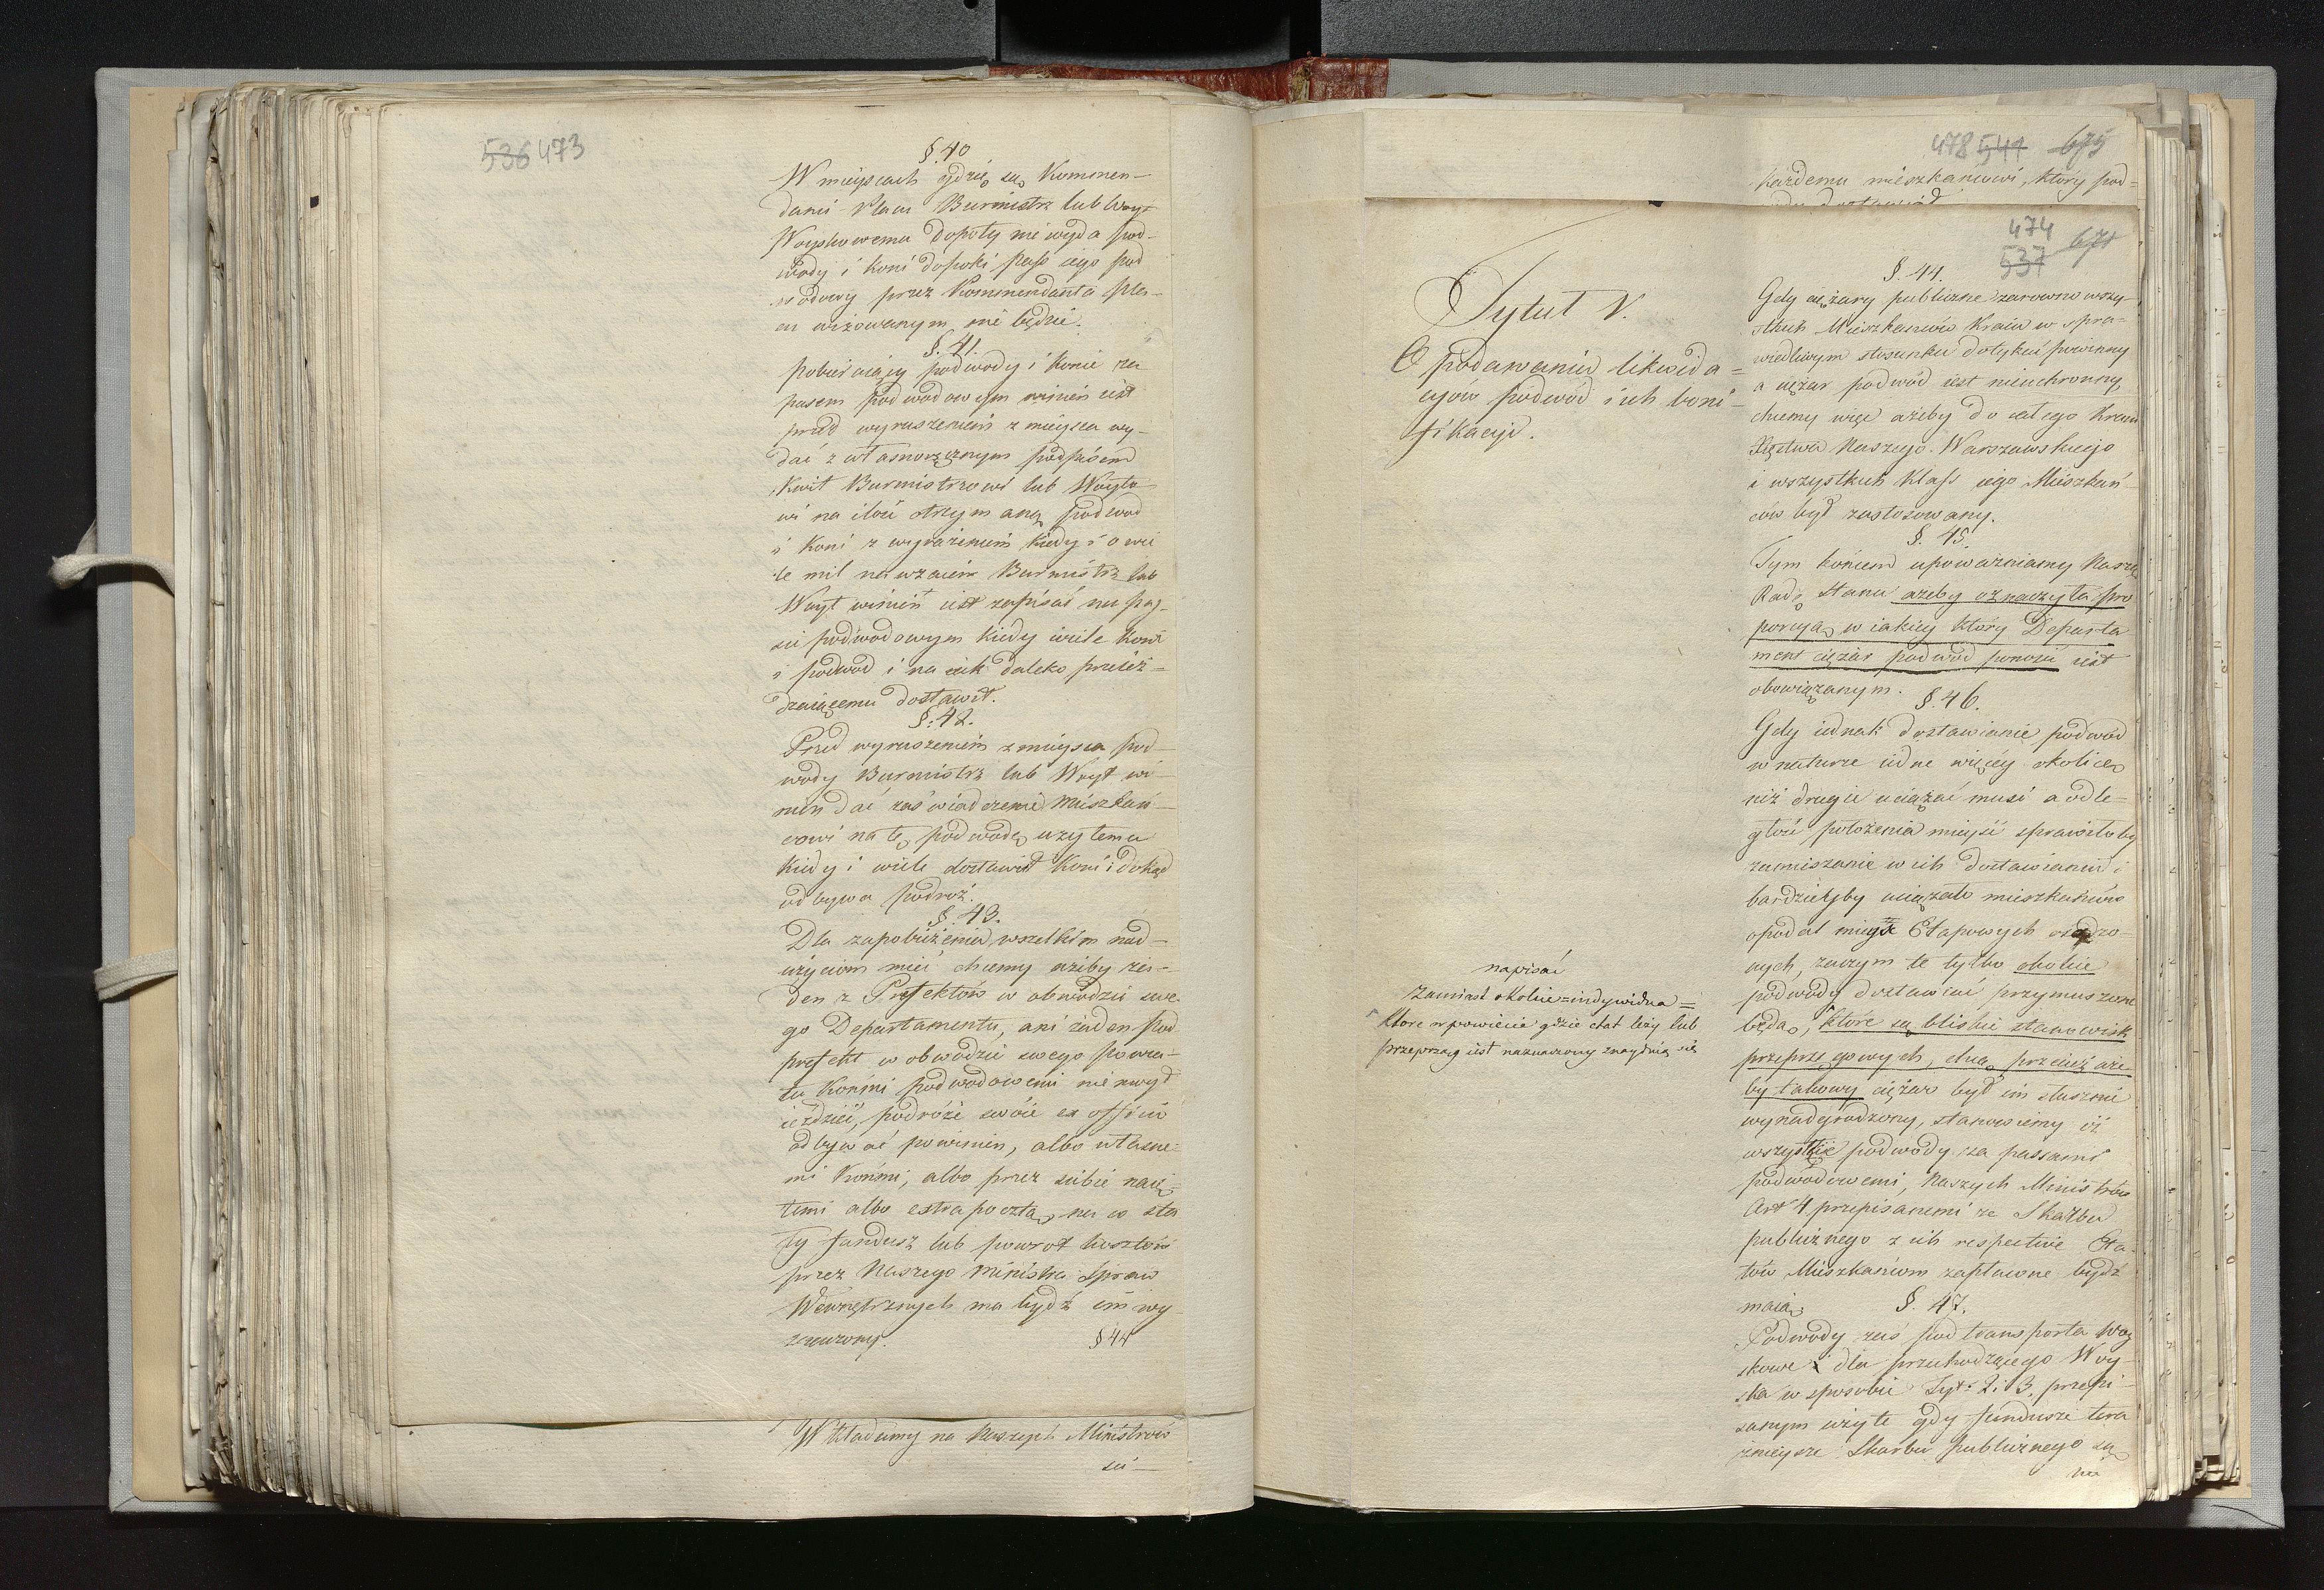 536 473
§. 40
W mieyscach gdzie są Kommen-
danci Placu Burmistrz lub Woyt
Woyskowemu dopoty nie wyda pod-
wody i koni dopoki pass iego pod
wodowy przez Kommendanta pla-
cu wizowanym nie będzie.
§. 41.
Pobieraiący podwody i konie za
pasem podwodowym winien iest
przed wyruszeniem z mieysca wy-
dać z własnoręcznym podpisem
Kwit Burmistrzowi lub Woyto-
wi na ilość otrzymaną podwod
i koni z wyrażeniem kiedy i o wie
le mil nawzaiem Burmistrz lub
Woyt winien iest zapisać na pas-
sie podwodowym kiedy i wiele koni
i podwod i na iak daleko przeież-
dzaiącemu dostawił.
§. 42.
Przed wyruszeniem z mieysca pod-
wody Burmistrz lub Woyt wi-
nien dać zaświadczenie Mieszkań-
cowi na tę podwodę użytemu
kiedy i wiele dostawił koni i dokąd
odbywa podroż.
§. 43.
Dla zapobieżenia wszelkim nad-
użyciom mieć chcemy ażeby ża-
den z Prefektow w obwodzie swe-
go Departamentu, ani żaden Pod
prefekt w obwodzie swego Powia-
tu końmi podwodowemi nie mógł
ieździć, podróże swoie ex officio
odbywać powinien, albo własne-
mi końmi, albo przez siebie naię-
temi albo extrapocztą, na co sta
ły fundusz lub powrot kosztow
przez Naszego Ministra Spraw
Wewnętrznych ma bydź im wy
znaczony.
§ 44
Wkładamy na Naszych Ministrow
478 541 675
każdemu mieszkancowi, ktory pod=
474
537 671
Tytuł V.
O podawaniu likwida=
cyów podwód i ich boni=
fikacyi.
§. 44.
Gdy ciężary publiczne zarowno wszy-
stkich Mieszkancow Kraiu w spra-
wiedliwym stosunku dotykać powinny
a ciężar podwód iest nieuchronny,
chcemy więc ażeby do całego Kraiu
Xięstwa Naszego Warszawskiego
i wszystkich Klass iego Mieszkań-
cow był zastosowany.
§. 45
Tym końcem upoważniamy Naszą
Radę Stanu ażeby oznaczyła pro
porcyą w iakiey ktory Departa
ment ciężar podwód ponosić iest
obowiązanym.
§. 46.
Gdy iednak dostawianie podwód
w naturze iedne więcey okolice
niż drugie uciążać musi a odle-
głość położenia mieysc sprawiłoby
zamieszanie w ich dostawianiu i
bardzieyby uciążało mieszkańców
opodal mieysc Etapowych osadzo-
nych, zaczym te tylko okolice
podwody dostawiać przymuszone
będą, które są bliskie stanowisk
przeprzęgowych, chcąc przecież aże
by takowy ciężar był im słusznie
wynadgrodzony, stanowiemy iż
wszystkie podwody za passami
podwodowemi, Naszych Ministrow
Art 4 przepisanemi ze Skarbu
publicznego z ich respective Eta-
tów Mieszkańcom zapłacone bydź
maią.
§. 47.
Podwody zaś pod transporta Woy
skowe i dla przechodzącego Woy-
ska w sposobie Tyt: 2. i 3. przepi-
sanym użyte gdy fundusze tera
źnieysze Skarbu publicznego są
napisać
zamiast okolice = indywidua =
które w powiecie gdzie etat leży lub
przeprząg iest naznaczony znaydują się